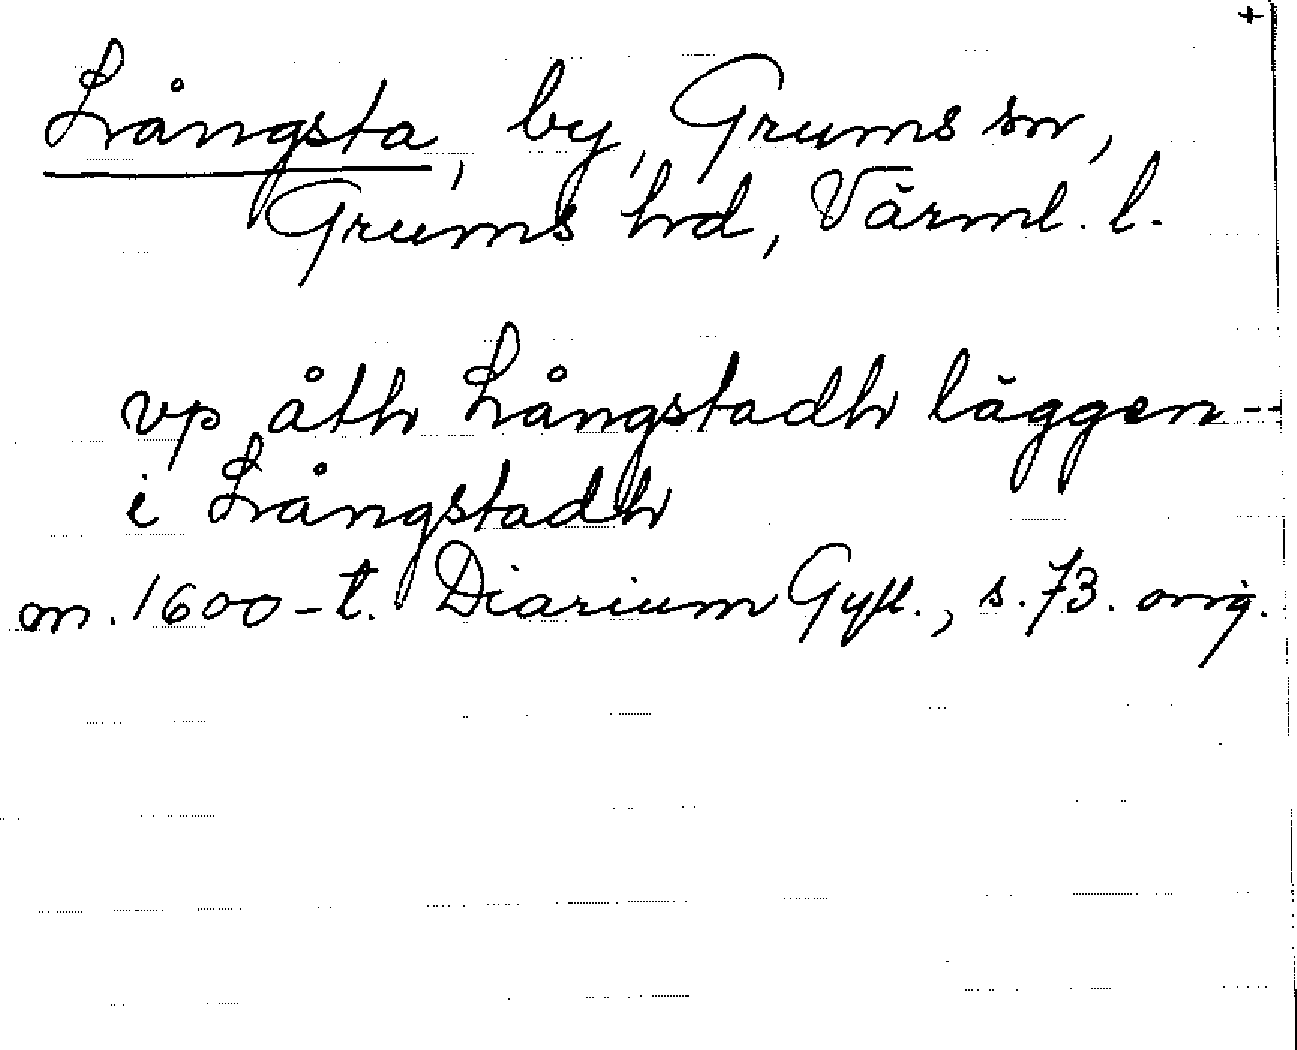 +
Långsta, by, Grums sn,
Grums hd, Värml. l.
vp åth Långstadh läggen--
i Långstadh
m. 1600-t. Diarium Gyll., s. 73. orig.